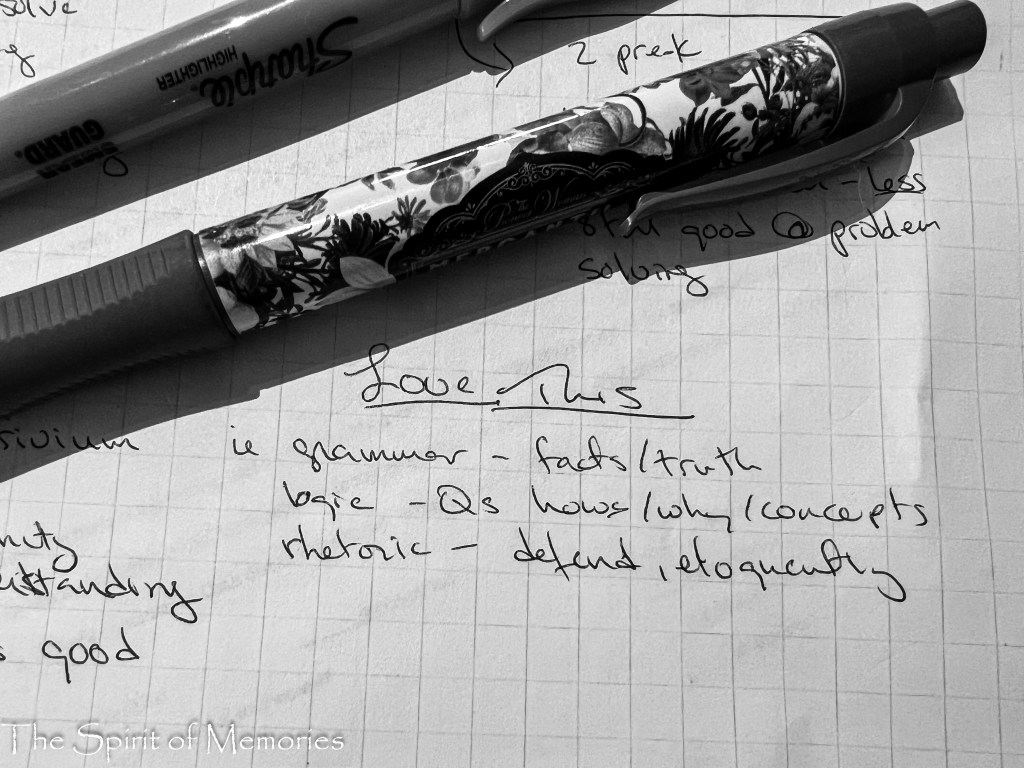 solve
Sharpie
HIGHLIGHTER
GUARD.
2 pre-k
- less
still good @ problem
solving
Love This
ie grammar - facts/truth
logic - Qs hows/why/concepts
rhetoric - defend, eloquently
good
The Spirit of Memories